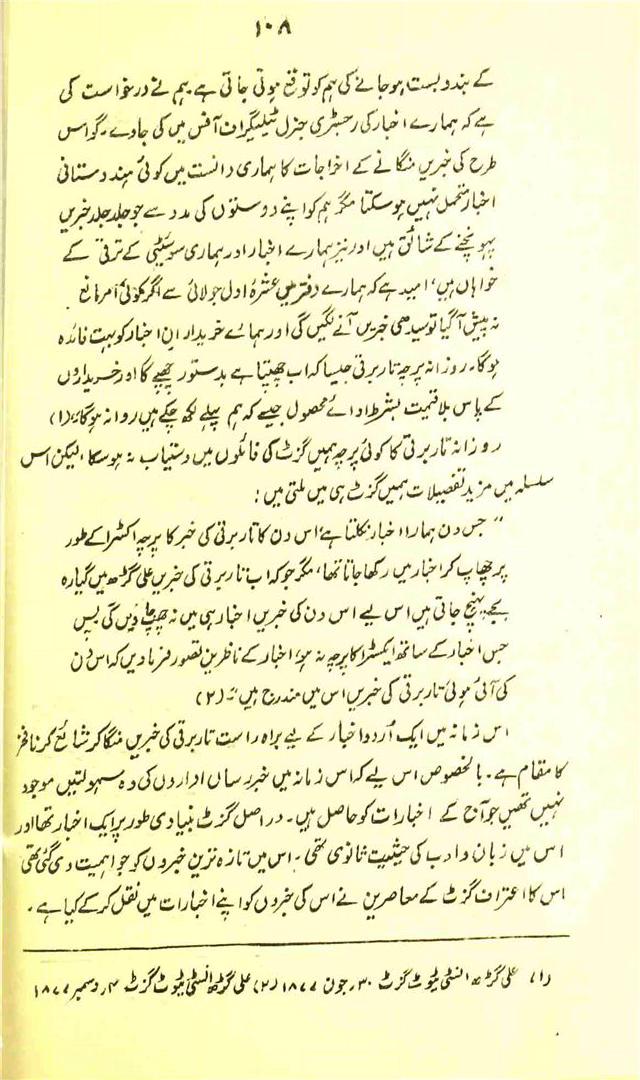 ۱۰۸
کے بندوبست ہو جانے کی ہم کو توقع ہوتی جاتی ہے۔ ہم نے درخواست کی
ہے کہ ہمارے اخبار کی رجسٹری جنرل ٹیلیگراف آفس میں کی جاوے۔ گو اس
طرح کی خبریں منگانے کے اخراجات کا ہماری دانست میں کوئی ہندوستانی
اخبار متحمل نہیں ہو سکتا مگر ہم کو اپنے دوستوں کی مدد سے جو جلد جلد خبریں
پہونچنے کے شائق ہیں اور نیز ہمارے اخبار اور ہماری سوسئیٹی کے ترقی کے
خواہاں ہیں، امید ہے کہ ہمارے دفتر میں عشرۂ اول جولائی سے اگر کوئی امر مانع
نہ پیش آ گیا تو سیدھی خبریں آنے لگیں گی اور ہمارے خریدار ان اخبار کو بہت فائدہ
ہوگا۔ روزانہ پرچہ تار برقی جیسا کہ اب چھپتا ہے بدستور چھپے گا اور خریداروں
کے پاس بلا قیمت بشرط ادائے محصول جیسے کہ ہم پہلے لکھ چکے ہیں روانہ ہوگا۔" (۱)
روزانہ تار برقی کا کوئی پرچہ ہمیں گزٹ کی فائلوں میں دستیاب نہ ہو سکا، لیکن اس
سلسلہ میں مزید تفصیلات ہمیں گزٹ ہی میں ملتی ہیں:
"جس دن ہمارا اخبار نکلتا ہے اس دن کا تار برقی کی خبر کا پرچہ اکسٹرا کے طور
پر چھاپ کر اخبار میں رکھا جاتا تھا، مگر جو کہ اب تار برقی کی خبریں علی گڑھ میں گیارہ
بجے پہنچ جاتی ہیں اس لیے اس دن کی خبریں اخبار ہی میں نہ چھاپ دیں گی پس
جس اخبار کے ساتھ ایکسٹرا کا پرچہ نہ ہو، اخبار کے ناظرین تصور فرما دیں کہ اس دن
کی آئی ہوئی تار برقی کی خبریں اس میں مندرج ہیں۔" (۲)
اس زمانہ میں ایک اُردو اخبار کے لیے براہ راست تار برقی کی خبریں منگا کر شائع کرنا فخر
کا مقام ہے۔ بالخصوص اس لیے کہ اس زمانہ میں خبر رساں اداروں کی وہ سہولتیں موجود
نہیں تھیں جو آج کے اخبارات کو حاصل ہیں۔ دراصل گزٹ بنیادی طور پر ایک اخبار تھا اور
اس میں زبان و ادب کی حیثیت ثانوی تھی۔ اس میں تازہ ترین خبروں کو جو اہمیت دی گئی تھی
اس کا اعتراف گزٹ کے معاصرین نے اس کی خبروں کو اپنے اخبارات میں نقل کر کے کیا ہے۔
(۱) علی گڑھ انسٹی ٹیوٹ گزٹ ۳۰؍ جون ۱۸۷۷ (۲) علی گڑھ انسٹی ٹیوٹ گزٹ ۴؍ دسمبر ۱۸۷۷